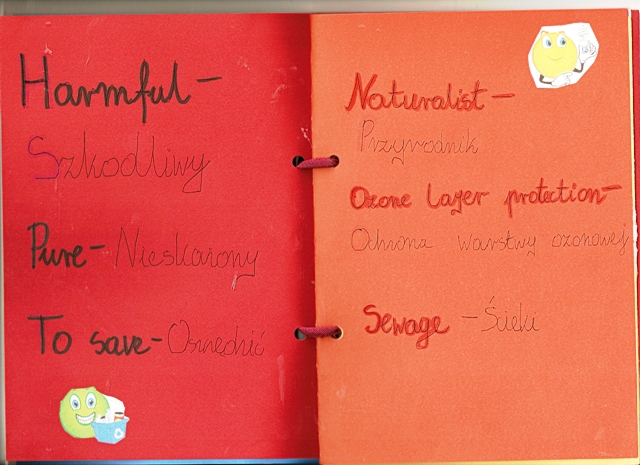 Harmful -
Szkodliwy
Pure - Nieskażony
To save -
Naturalist -
Przyrodnik
Ozone layer protection -
Ochrona warstwy ozonowej
Sewage - Ścieki